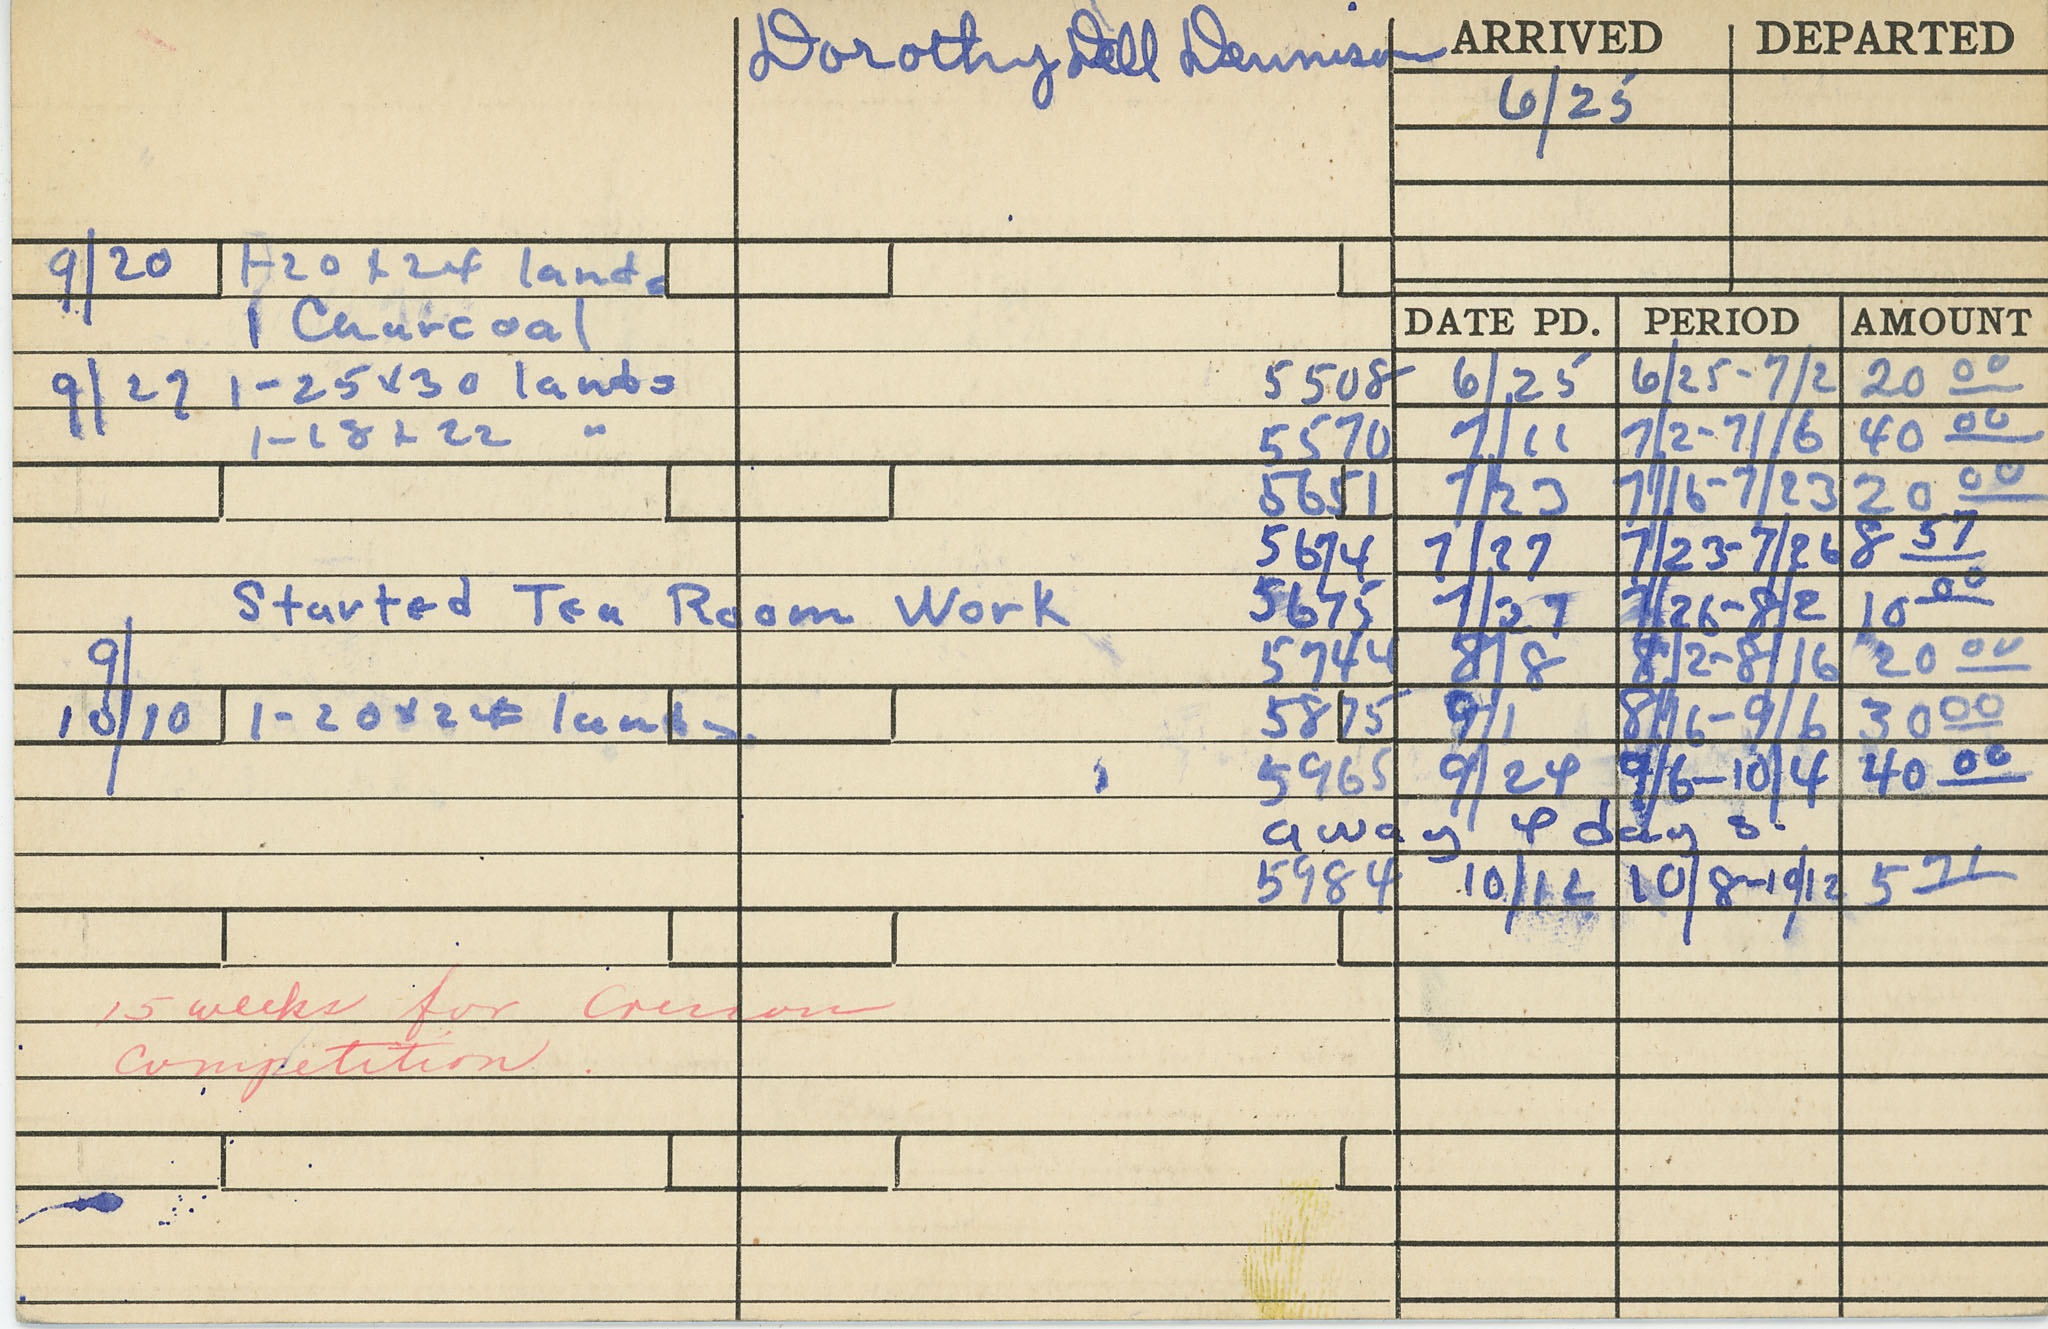 Dorothy Dell Dennison ARRIVED DEPARTED
6/25
9/20 1-20x24 lands
1 Charcoal
DATE PD. PERIOD AMOUNT
9/27 1-25x30 lands 5508 6/25 6/25-7/2 20 00
1-18x22 " 5570 7/11 7/2-7/16 40 00
5651 7/23 7/16-7/23 20 00
5674 7/27 7/23-7/26 8 57
Started Tea Room Work 5675 7/27 7/26-8/2 10 00
5744 8/8 8/2-8/16 20 00
9/
10/10 1-20x24 lands. 5875 9/1 8/16-9/6 30 00
5965 9/24 9/6-10/4 40 00
away 4 days.
5984 10/12 10/8-10/12 5 71
15 weeks for Cresson
competition.